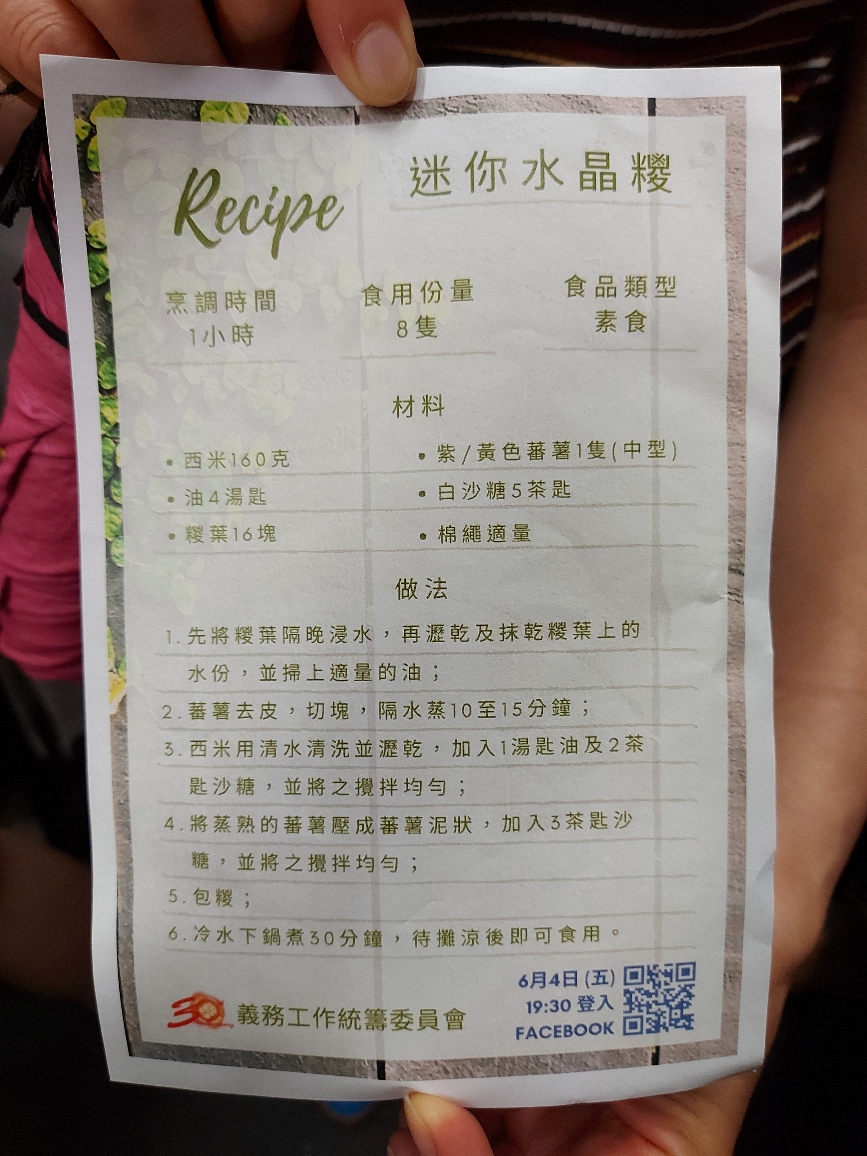 Recipe
迷你水晶糭
烹調時間
1小時
食用份量
8隻
食品類型
素食
材料
• 西米160克
• 油4湯匙
• 糭葉16塊
• 紫/黃色蕃薯1隻(中型)
• 白沙糖5茶匙
• 棉繩適量
做法
1. 先將糭葉隔晚浸水，再瀝乾及抹乾糭葉上的
水份，並掃上適量的油；
2. 蕃薯去皮，切塊，隔水蒸10至15分鐘；
3. 西米用清水清洗並瀝乾，加入1湯匙油及2茶
匙沙糖，並將之攪拌均勻；
4. 將蒸熟的蕃薯壓成蕃薯泥狀，加入3茶匙沙
糖，並將之攪拌均勻；
5. 包糭；
6. 冷水下鍋煮30分鐘，待攤涼後即可食用。
30 義務工作統籌委員會
6月4日 (五)
19:30 登入
FACEBOOK